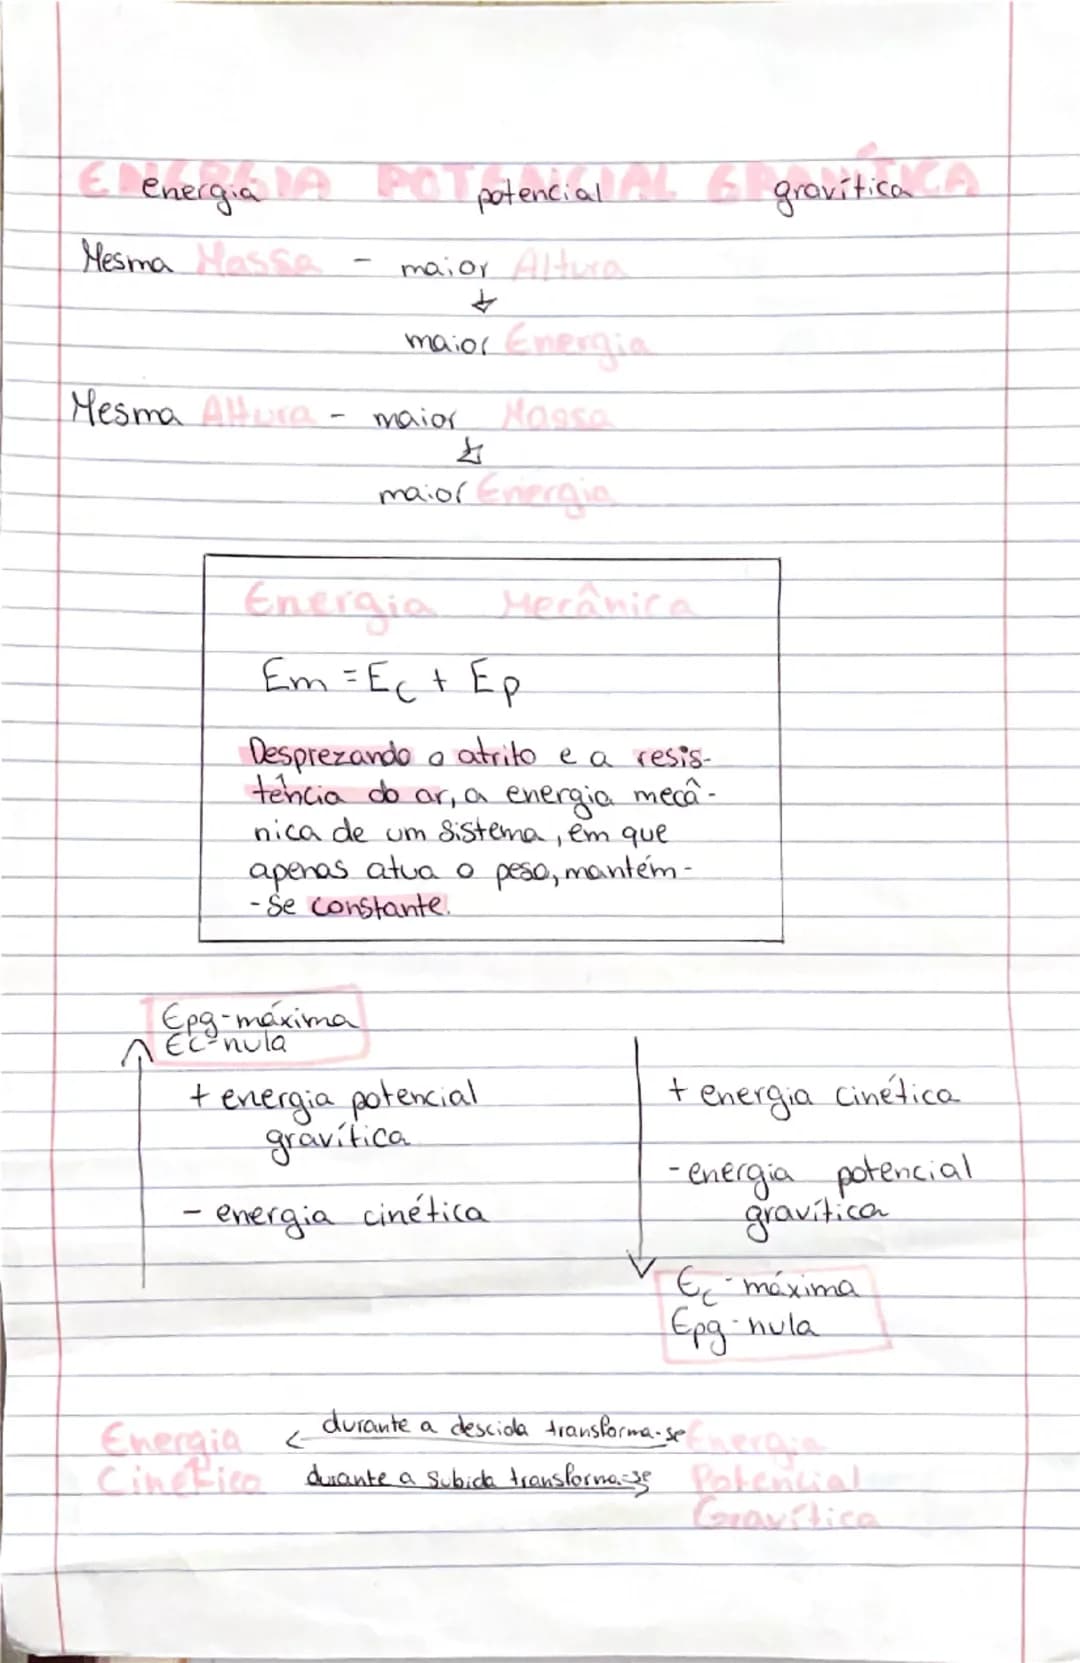 ENERGIA POTENCIAL GRAVÍTICA
energia potencial gravítica
Mesma Massa - maior Altura
maior Energia
Mesma Altura - maior Massa
maior Energia
Energia Mecânica
Em = Ec + Ep
Desprezando o atrito e a resis-
tência do ar, a energia mecâ-
nica de um sistema, em que
apenas atua o peso, mantém-
-se constante.
Epg-máxima
Ec-nula
+ energia potencial
gravítica
- energia cinética
+ energia cinética
- energia potencial
gravítica
Ec-máxima
Epg-nula
Energia durante a descida transforma-se Energia
Cinética durante a subida transforma-se Potencial
Gravítica